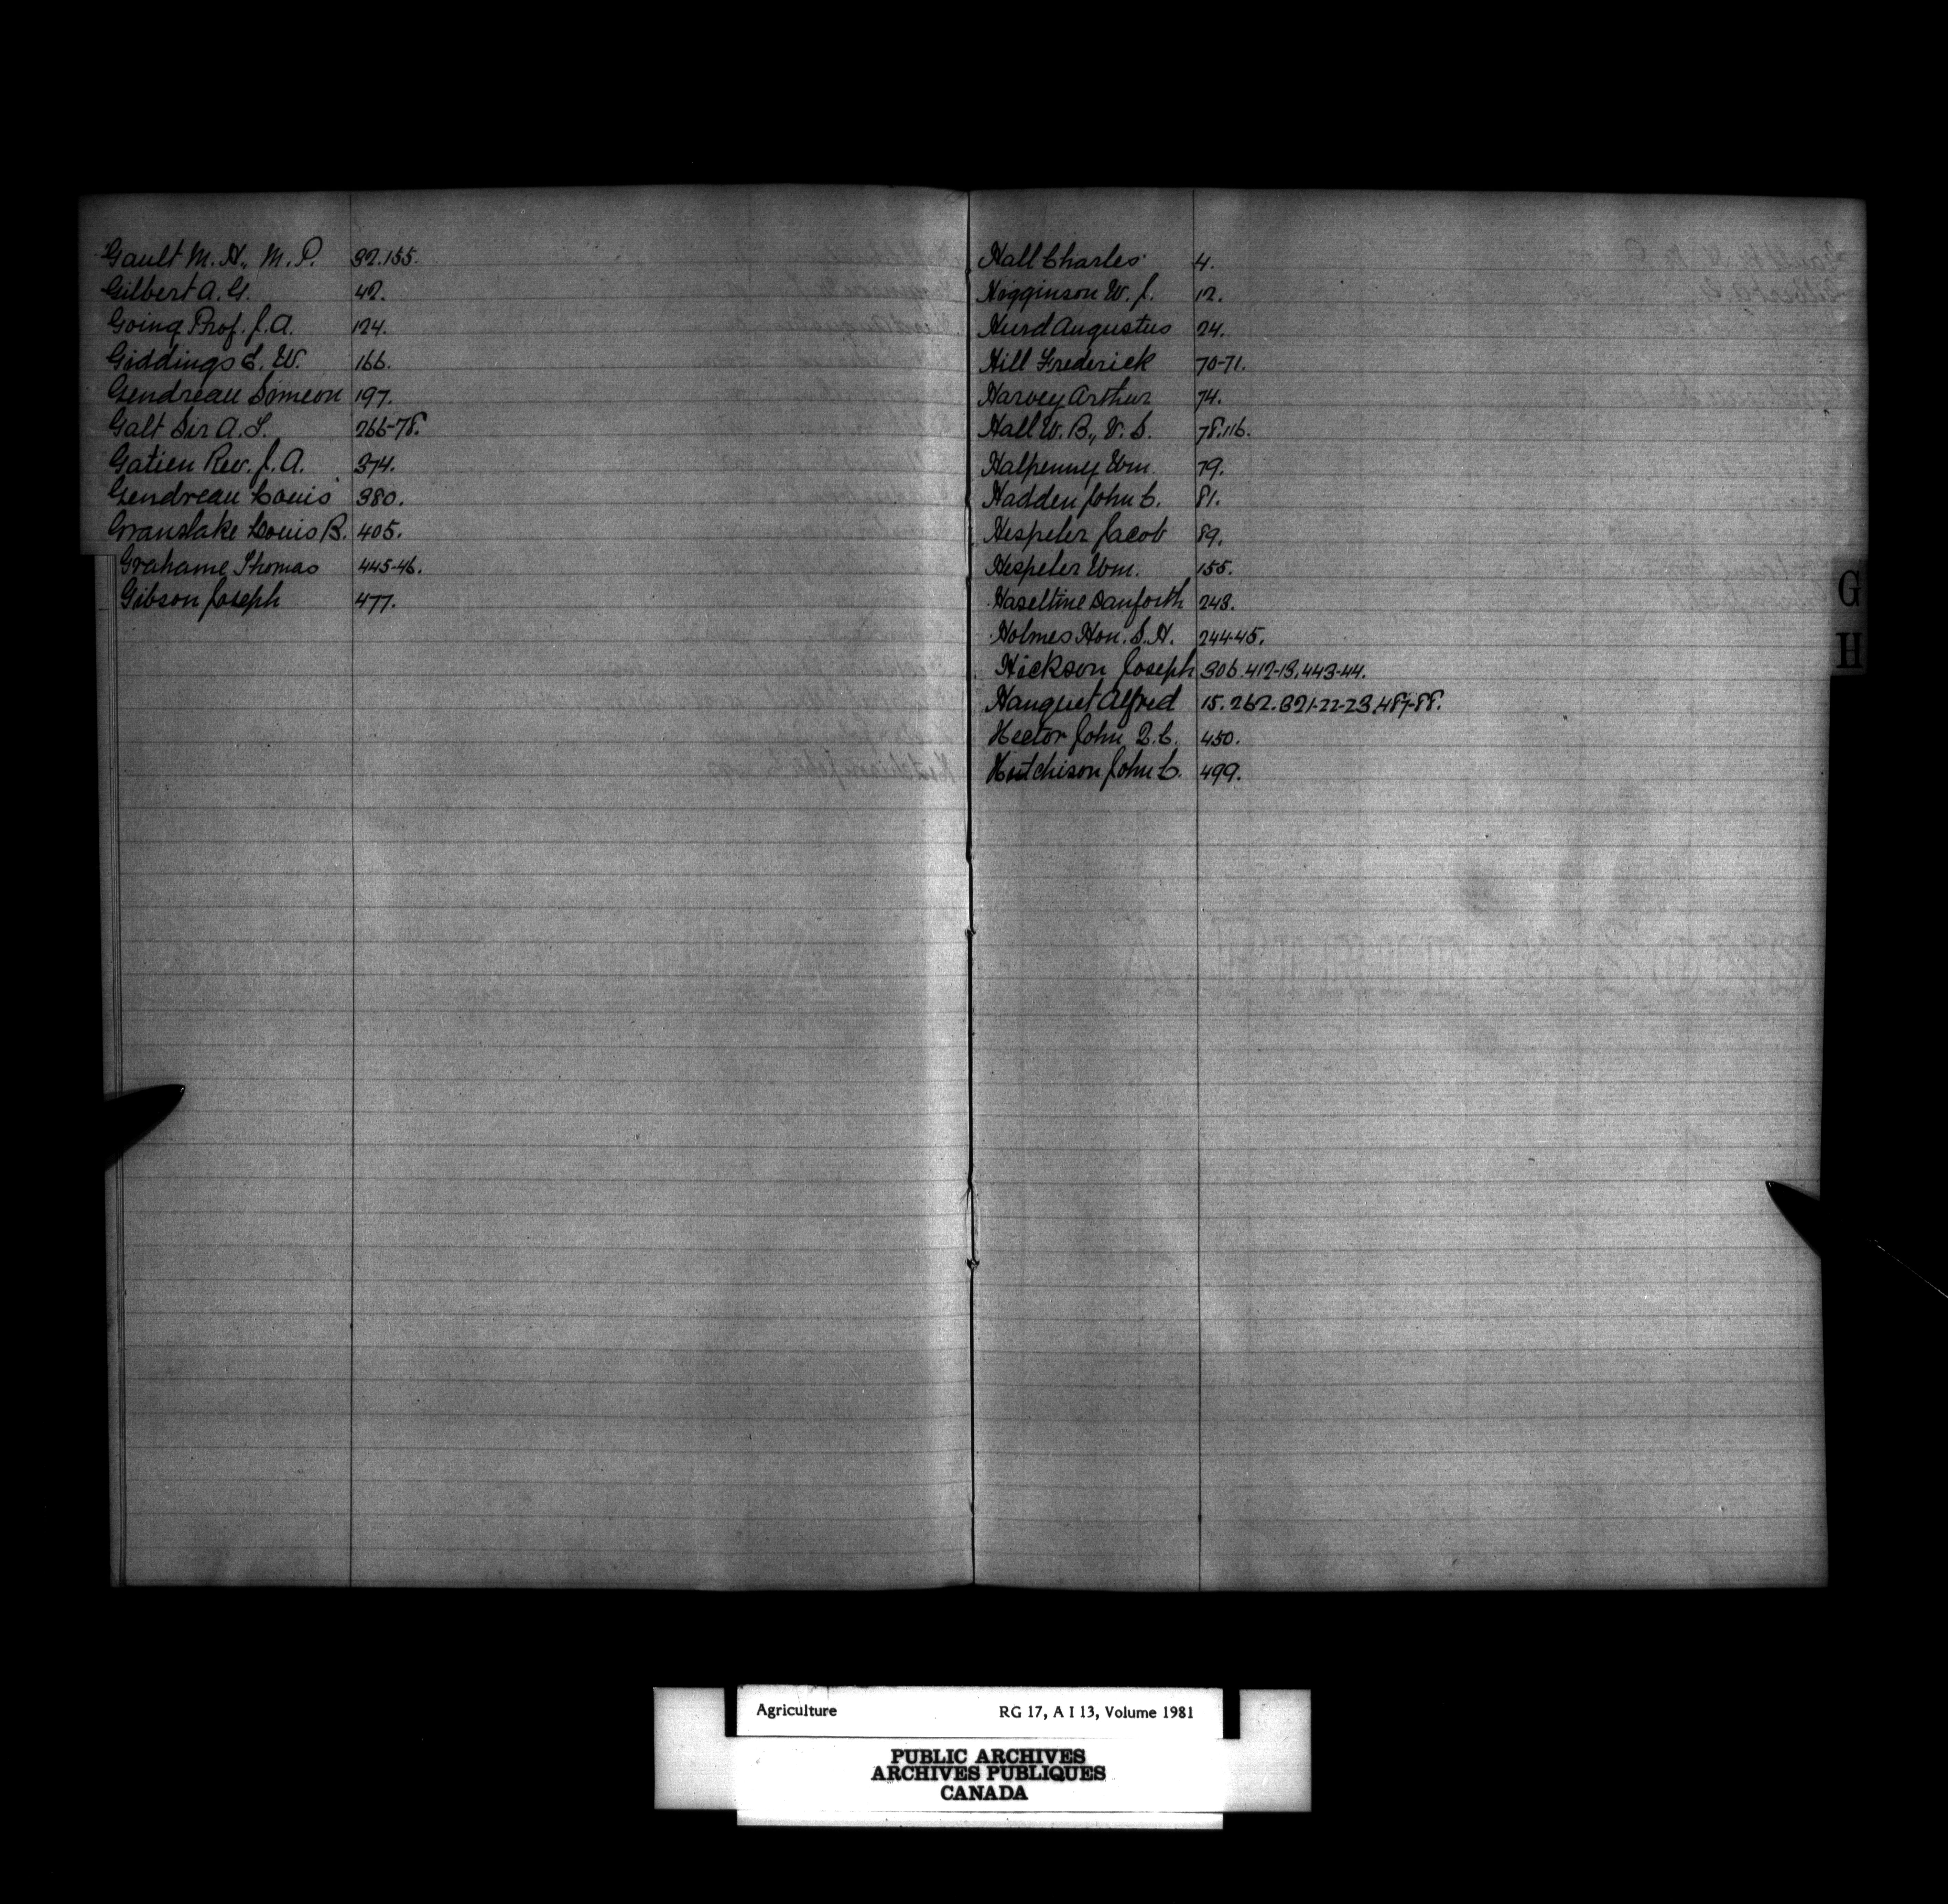 Gault M. H., M. P. 32.155.
Gilbert A. G. 42.
Going Prof. J. A. 124.
Giddings S. W. 166.
Gendreau Simeon 197.
Galt Sir A. T. 266-78.
Gatien Rev. J. A. 374.
Gendreau Louis 380.
Granslake Louis B. 405.
Grahame Thomas 445-46.
Gibson Joseph 477.
Hall Charles 4.
Higginson W. J. 12.
Hurd Augustus 24.
Hill Frederick 70-71.
Harvey Arthur 74.
Hall W. B., V. S. 78.116.
Halpenny Wm. 79.
Hadden John C. 81.
Hespeler Jacob 89.
Hespeler Wm. 155.
Haseltine Danforth 243.
Holmes Hon. S. H. 244-45.
Hickson Joseph 306.412-13.443-44.
Hanquet Alfred 15.262.321-22-23.487-88.
Hector John Q.C. 450.
Hutchison John C. 499.
G
H
Agriculture RG 17, A I 13, Volume 1981
PUBLIC ARCHIVES
ARCHIVES PUBLIQUES
CANADA